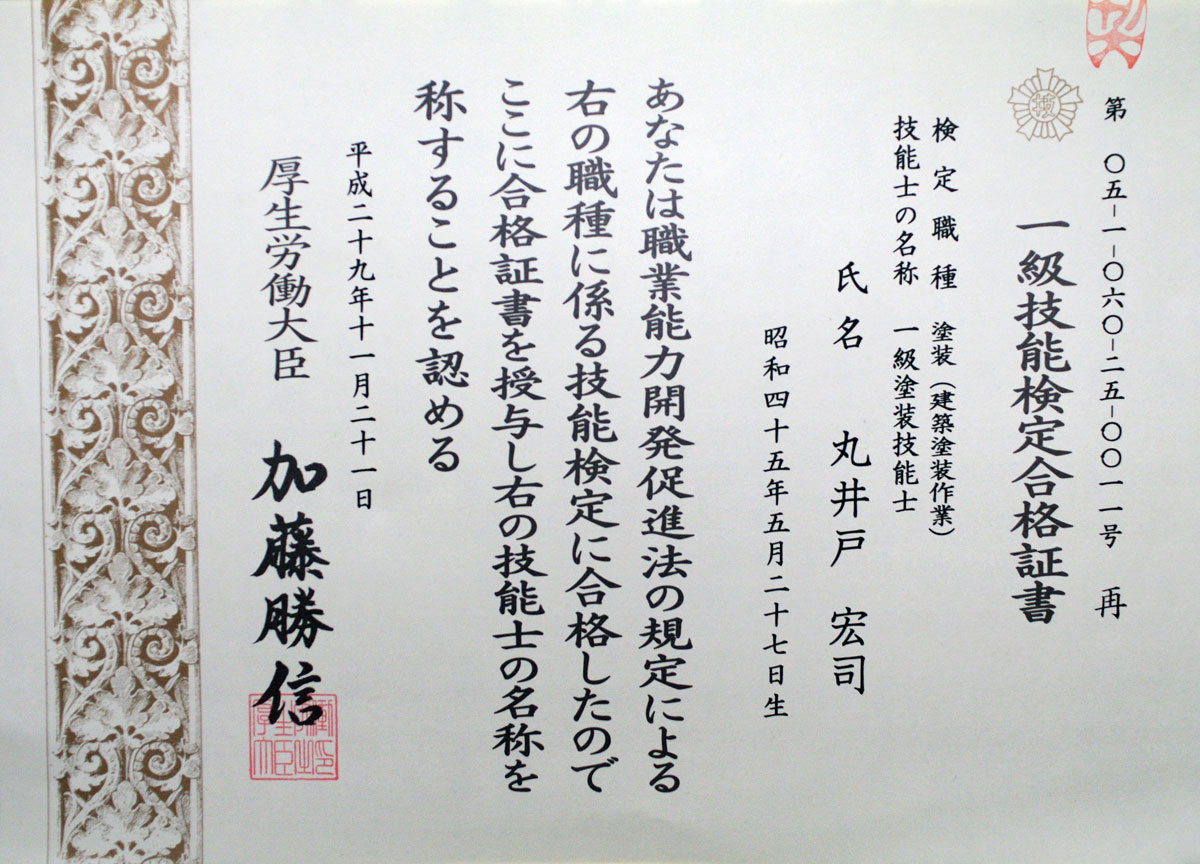 第 〇五-一-〇六〇-二五-〇〇一一号 再
技
一級技能検定合格証書
検定職種 塗装(建築塗装作業)
技能士の名称 一級塗装技能士
氏名 丸井戸 宏司
昭和四十五年五月二十七日生
あなたは職業能力開発促進法の規定による
右の職種に係る技能検定に合格したので
ここに合格証書を授与し右の技能士の名称を
称することを認める
平成二十九年十一月二十一日
厚生労働大臣 加藤勝信